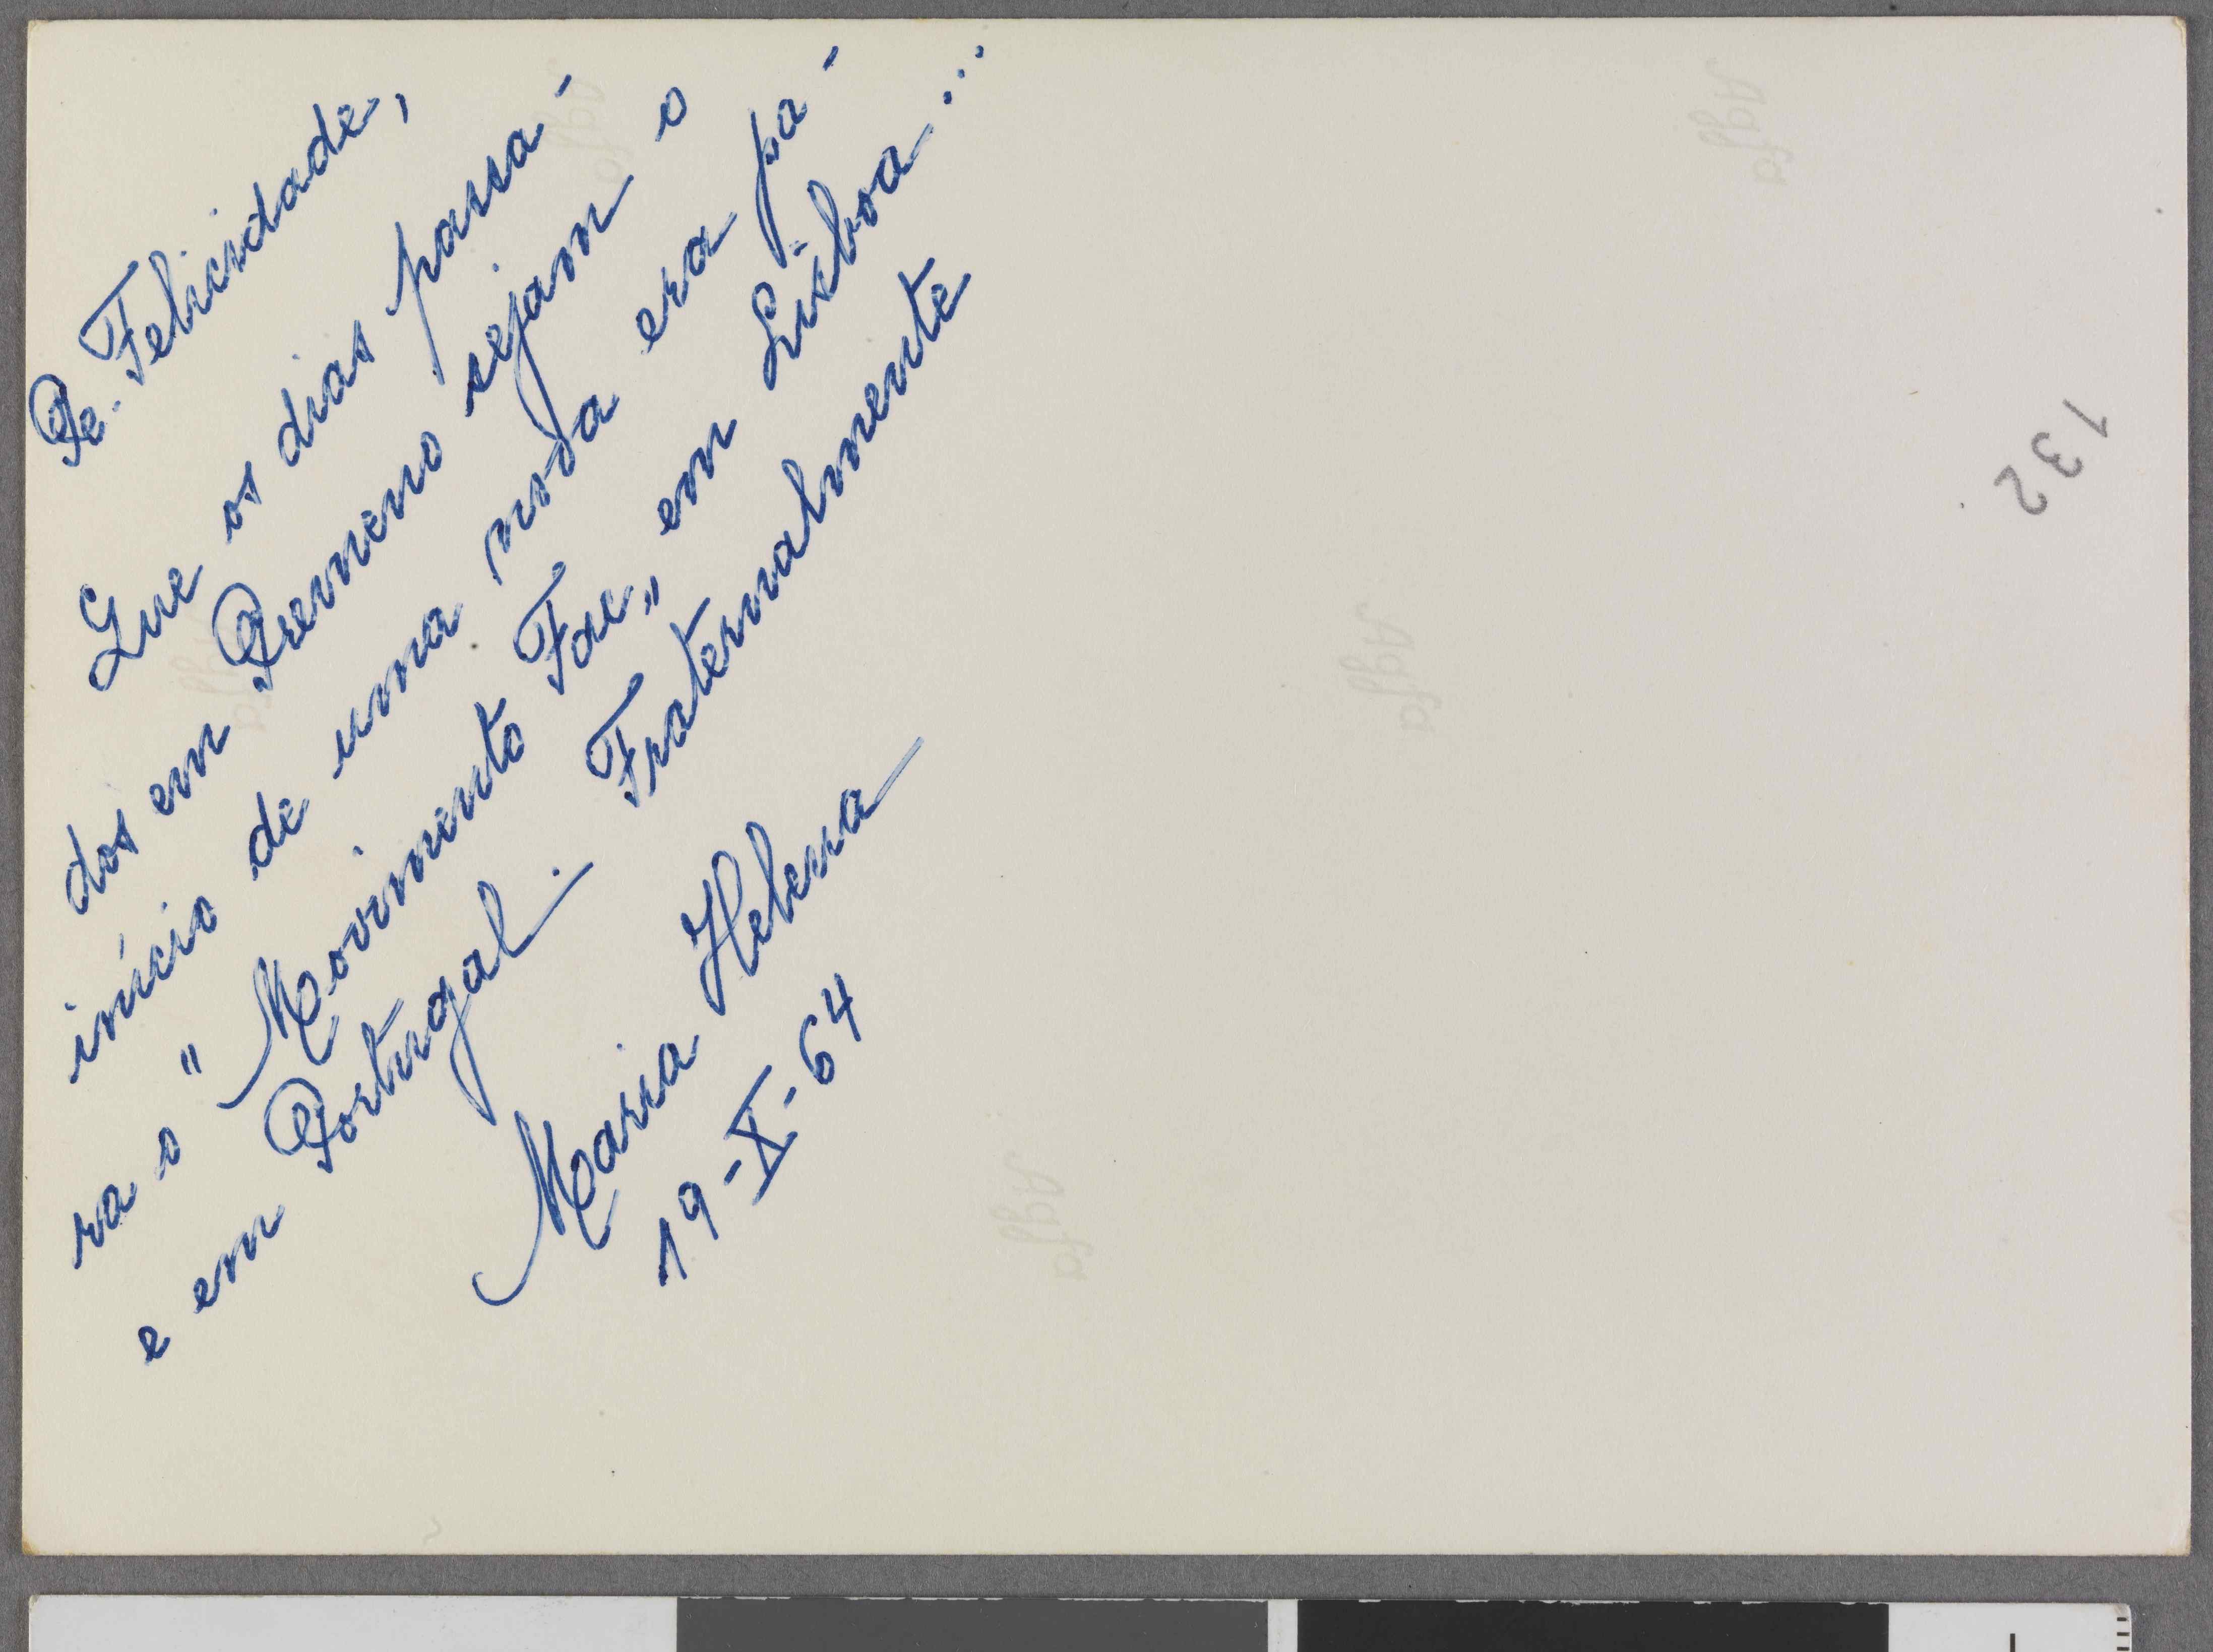 Pe. Felicidade,
Que os dias passa-
dos em Puemeno sejam o
início de uma nova era pa-
ra o "Movimento Fac" em Lisboa...
e em Portugal. Fraternalmente
Maria Helena
19-X-64
132
Agfa
Agfa
Agfa
Agfa
Agfa